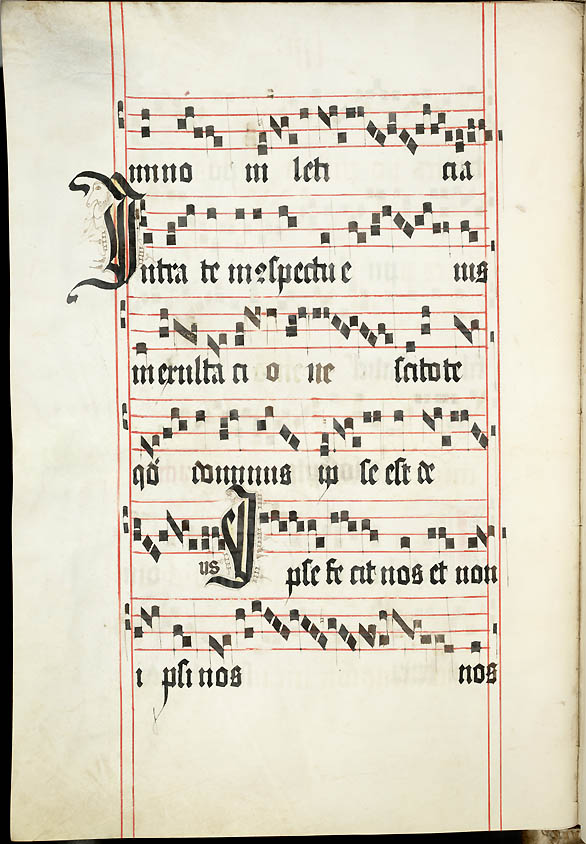 mino in leti cia
Intra te in ꝯspectu e ius
in exulta ci o ne scitote
qd̄ dominus ip se est de
us Ipse fe cit nos et non
i psi nos nos